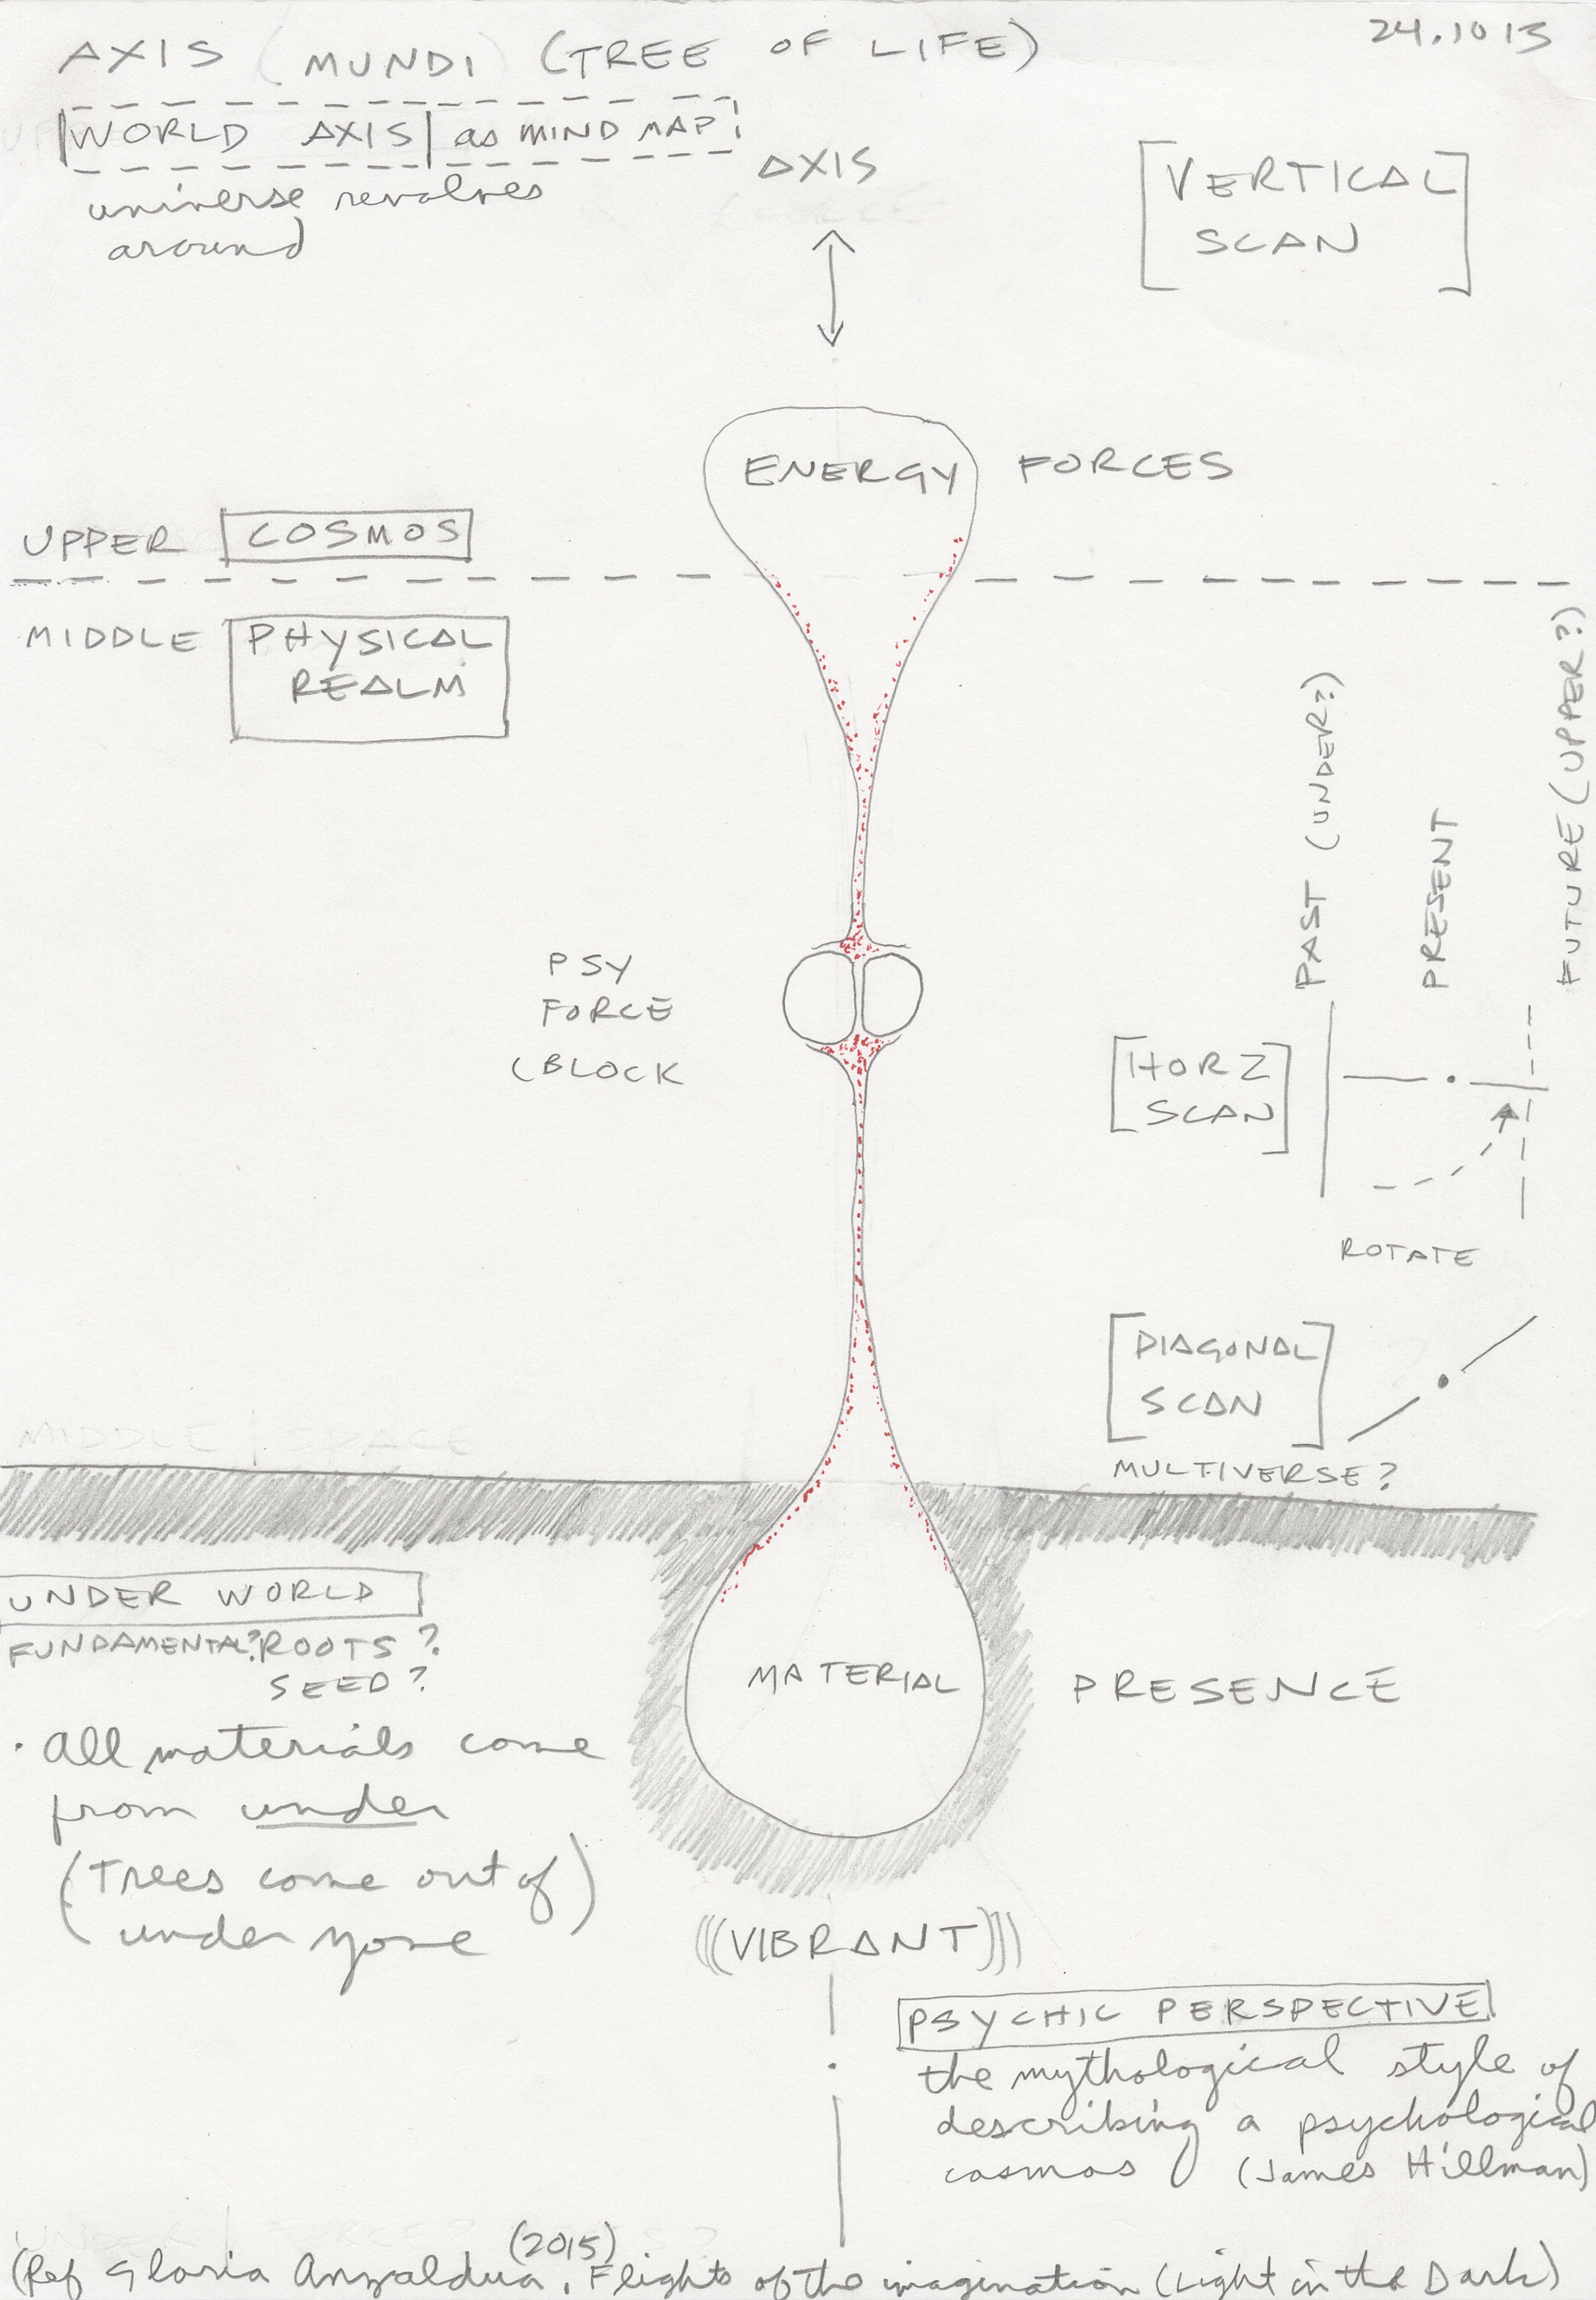 AXIS (MUNDI) (TREE OF LIFE)
24.10 15
WORLD AXIS as MIND MAP
universe revolves
around
AXIS
[VERTICAL
SCAN]
ENERGY FORCES
UPPER COSMOS
MIDDLE PHYSICAL
REALM
PAST (UNDER?)
PRESENT
FUTURE (UPPER?)
PSY
FORCE
(BLOCK
[HORZ
SCAN]
ROTATE
[DIAGONAL
SCAN]
MULTIVERSE?
MIDDLE / SPACE
UNDER WORLD
FUNDAMENTAL? ROOTS?
SEED?
MATERIAL PRESENCE
· All materials come
from under
(Trees come out of)
under zone
(((VIBRANT)))
PSYCHIC PERSPECTIVE
the mythological style of
describing a psychological
cosmos (James Hillman)
(Ref Gloria Anzaldua. (2015) Flights of the imagination (Light in the Dark)